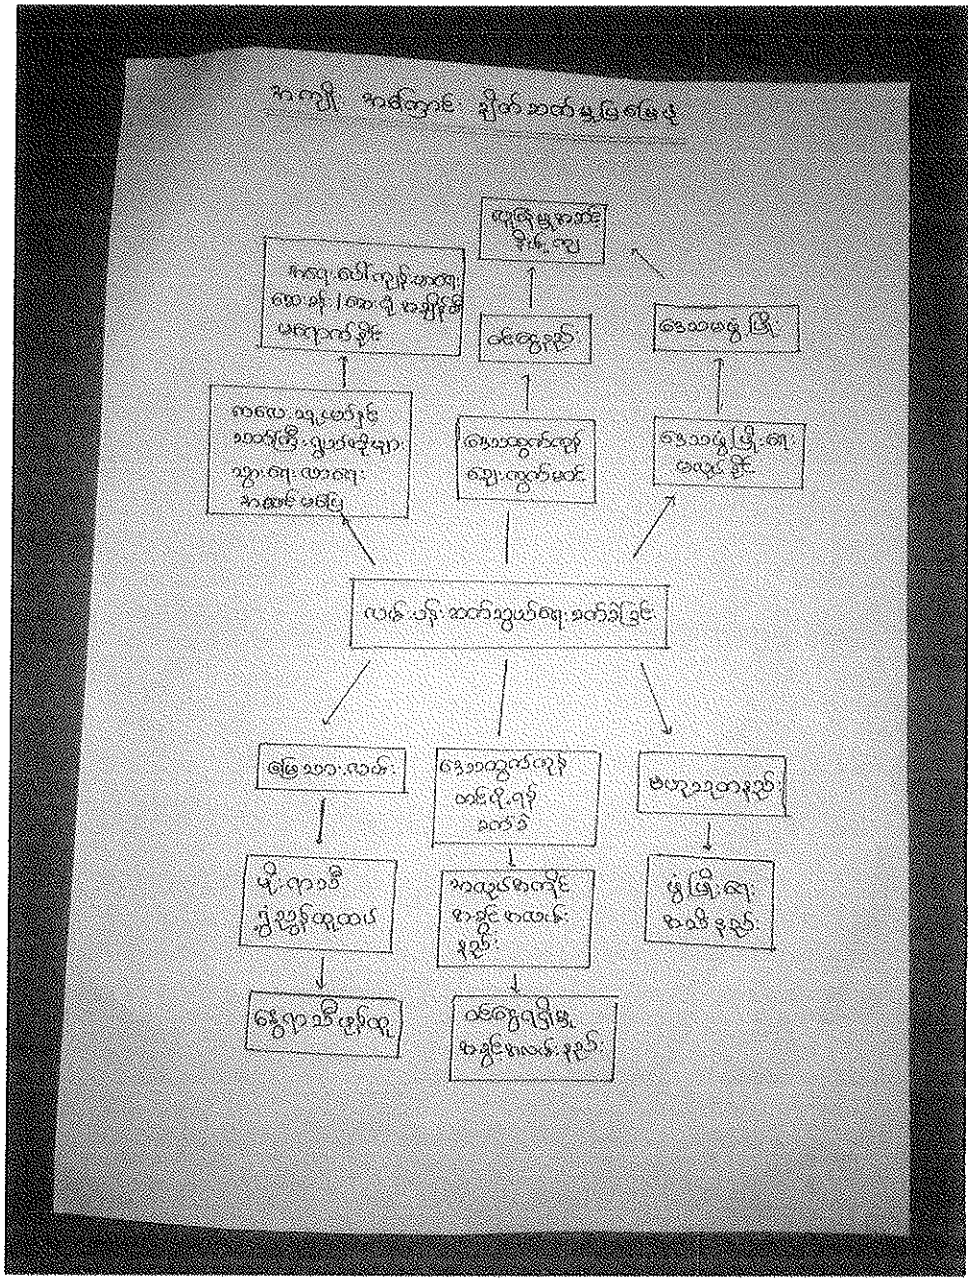 အကျိုး အကြောင်း ချိတ်ဆက်မှုပြမြေပုံ
လူမှုစီးပွား
နိမ့်ကျ
အရေးပေါ်လူနာများ
ဆေးခန်း / ဆေးရုံ အချိန်မီ
မရောက်နိုင်
ဝင်ငွေနည်း
ဒေသမဖွံ့ဖြိုး
ကလေး သူငယ်နှင့်
သက်ကြီးရွယ်အိုများ
သွားရေးလာရေး
အဆင်မပြေ
ဒေသထွက်ကုန်
ဈေးကွက်မဝင်
ဒေသဖွံ့ဖြိုးရေး
မလုပ်နိုင်
လမ်းပန်းဆက်သွယ်ရေးခက်ခဲခြင်း
မြေသားလမ်း
ဒေသထွက်ကုန်
တင်ပို့ရန်
ခက်ခဲ
ဗဟုသုတနည်း
မိုးရာသီ
ရွှံ့ညွန်ထူထပ်
အလုပ်အကိုင်
အခွင့်အလမ်း
နည်း
ဖွံ့ဖြိုးရေး
အသိနည်း
နွေရာသီဖုန်ထူ
ဝင်ငွေရရှိမှု
အခွင့်အလမ်းနည်း